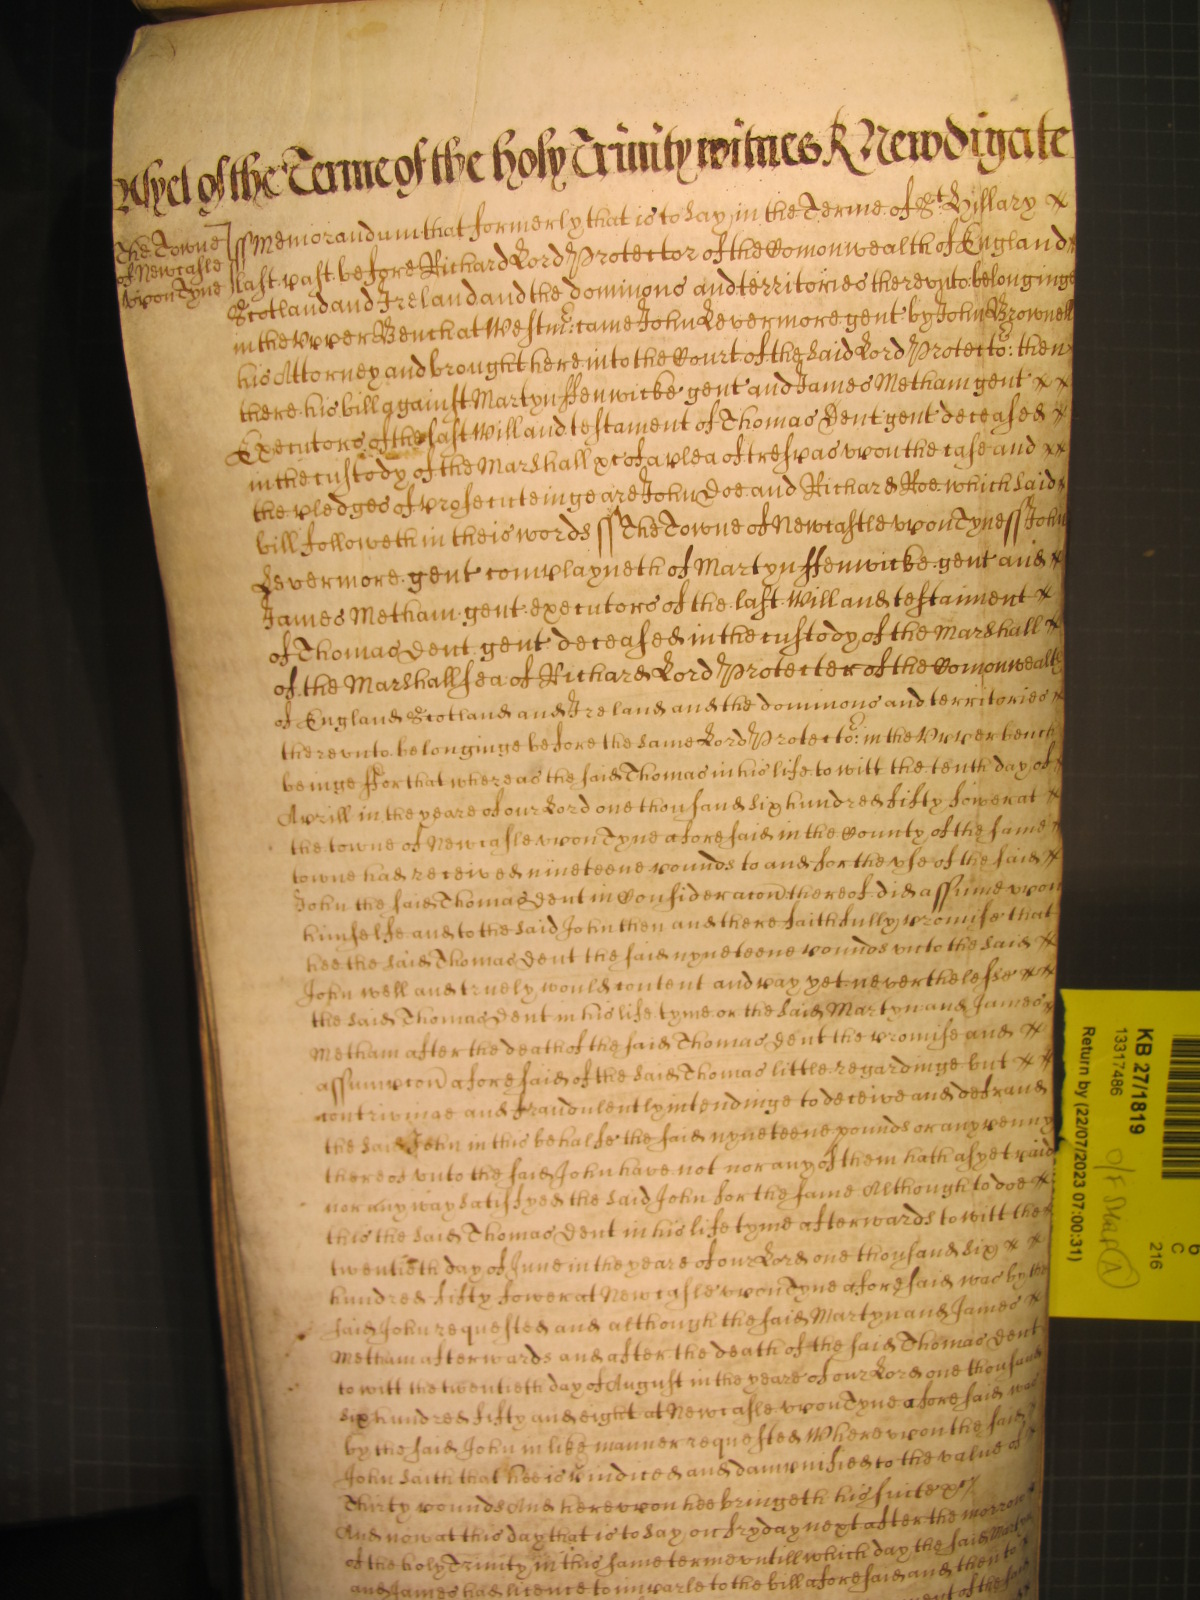 As yet of the Terme of the holy Trinity witnes R Newdigate
The Towne
of Newcastle
upon Tyne
ss Memorandum that formerly that is to say in the Terme of St. Hillary
last past before Richard Lord Protector of the Comonwealth of England
Scotland and Ireland and the dominions and territories thereunto belonginge
in the Upper Bench at Westmr: came John Levermore gent by John Brownell
his Attorney and brought here into the Court of the said Lord Protector: then
there his bill against Martyn ffenwicke gent and James Metham gent
Executors of the last Will and testament of Thomas Dent gent deceased
in the custody of the Marshall xc of a plea of trespas upon the case and
the pledges of prosecuteinge are John Doe and Richard Roe which said
bill followeth in theis words ss The Towne of Newcastle upon Tyne ss John
Levermore gent complayneth of Martyn ffenwicke gent and
James Metham gent executors of the last Will and testament
of Thomas Dent gent deceased in the custody of the Marshall
of the Marshallsea of Richard Lord Protector of the Comonwealth
of England Scotland and Ireland and the dominions and territories
thereunto belonginge before the same Lord Protector: in the Upper bench
beinge ffor that whereas the said Thomas in his life to witt the tenth day of
Aprill in the yeare of our Lord one thousand six hundred fifty fower at
the towne of Newcastle upon Tyne aforesaid in the County of the same
towne had received nineteene pounds to and for the use of the said
John the said Thomas Dent in Consideracon thereof did assume upon
himselfe and to the said John then and there faithfully promise that
hee the said Thomas Dent the said nyneteene pounds unto the said
John well and truely would content and pay yet neverthelesse
the said Thomas Dent in his life tyme or the said Martyn and James
Metham after the death of the said Thomas Dent the promise and
assumpcon aforesaid of the said Thomas little regardinge but
contrivinge and fraudulently intendinge to deceive and defraud
the said John in this behalfe the said nyneteene pounds or any penny
thereof unto the said John have not nor any of them hath as yet paid
nor any way satisfyed the said John for the same Although to doe
this the said Thomas Dent in his life tyme afterwards to witt the
twentieth day of June in the yeare of our Lord one thousand six
hundred fifty fower at Newcastle upon Tyne aforesaid was by the
said John requested and although the said Martyn and James
Metham afterwards and after the death of the said Thomas Dent
to witt the twentieth day of August in the yeare of our Lord one thousand
six hundred fifty and eight at Newcastle upon Tyne aforesaid was
by the said John in like manner requested Whereupon the said
John saith that hee is and dampnified to the value of
Thirty pounds And hereupon hee bringeth his suite xc
And now at this day that is to say on fryday next after the morrow
of the holy Trinity in this same terme untill which day the said Martyn
and James had licence to imparle to the bill aforesaid and then to
KB 27/1819
13317486
Return by (22/07/2023 07:00:31)
216
C
A